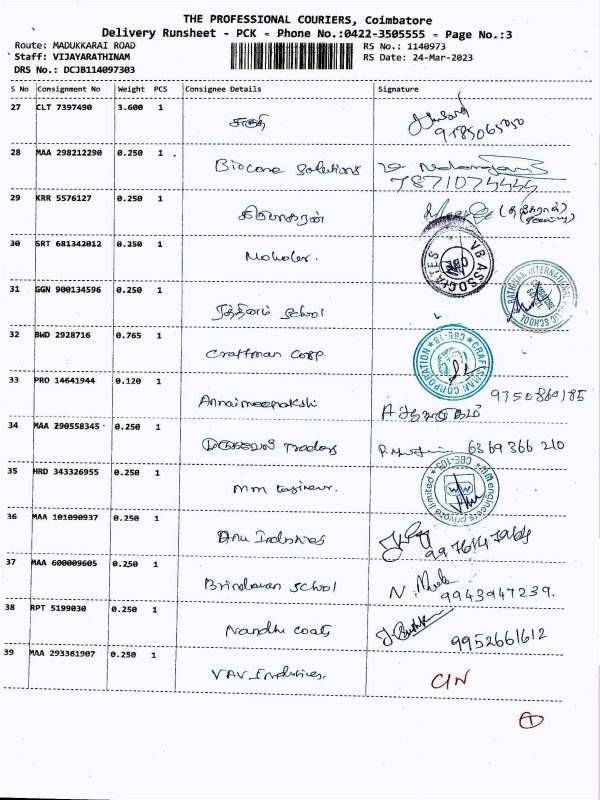 THE PROFESSIONAL COURIERS, Coimbatore
Delivery Runsheet - PCK - Phone No.:0422-3505555 - Page No.:3
Route: MADUKKARAI ROAD RS No.: 1140973
Staff: VIJAYARATHINAM RS Date: 24-Mar-2023
DRS No.: DCJB114097303
S No Consignment No Weight PCS Consignee Details Signature
27 CLT 7397490 3.600 1
28 MAA 298212290 0.250 1 Biocone Solutions
7871074444
29 KRR 5576127 0.250 1 கிருபாகரன்
30 SRT 681342012 0.250 1
VB ASSOCIATES CBE
31 GGN 900134596 0.250 1 ரத்தினம் School
RATHINAM INTERNATIONAL PUBLIC SCHOOL
32 BWD 2928716 0.765 1 Craftman Corp
CRAFTSMAN CORPORATION CBE-18
33 PRO 14641944 0.120 1 Annaimeenakshi
9750860185
34 MAA 290558345 0.250 1 Traders
6369366 210
35 HRD 343326955 0.250 1 MM
MM engineers private limited CBE-105
36 MAA 101090937 0.250 1 Anu Industries
37 MAA 600009605 0.250 1 Brindavan School
9943947239.
38 RPT 5199030 0.250 1 Nandhi coats
9952661612
39 MAA 293361907 0.250 1 VAV Industries.